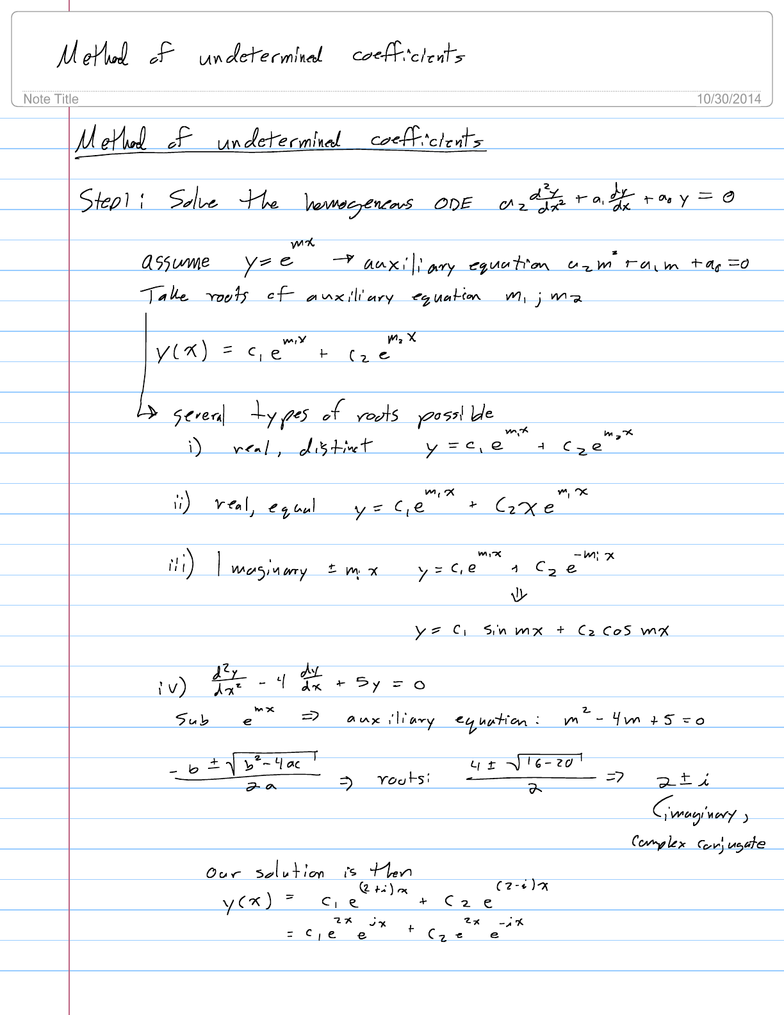 Method of undetermined coefficients
Note Title
10/30/2014
Method of undetermined coefficients
Step1: Solve the homogeneous ODE a₂ d²y/dx² + a₁ dy/dx + a₀ y = 0
assume y = e^{mx} → auxiliary equation a₂m² + a₁m + a₀ = 0
Take roots of auxiliary equation m₁ ; m₂
y(x) = c₁e^{m₁x} + c₂e^{m₂x}
↳ several types of roots possible
i) real, distinct y = c₁e^{m₁x} + c₂e^{m₂x}
ii) real, equal y = c₁e^{m₁x} + c₂xe^{m₁x}
iii) Imaginary ± mᵢ x y = c₁e^{m₁x} + c₂e^{-mᵢx}
⇓
y = c₁ sin mx + c₂ cos mx
iv) d²y/dx² - 4 dy/dx + 5y = 0
Sub e^{mx} ⇒ auxiliary equation: m² - 4m + 5 = 0
(-b ± √(b² - 4ac))/2a ⇒ roots: (4 ± √(16-20))/2 ⇒ 2 ± i
(imaginary,
complex conjugate
Our solution is then
y(x) = c₁e^{(2+i)x} + c₂e^{(2-i)x}
= c₁e^{2x}e^{ix} + c₂e^{2x}e^{-ix}